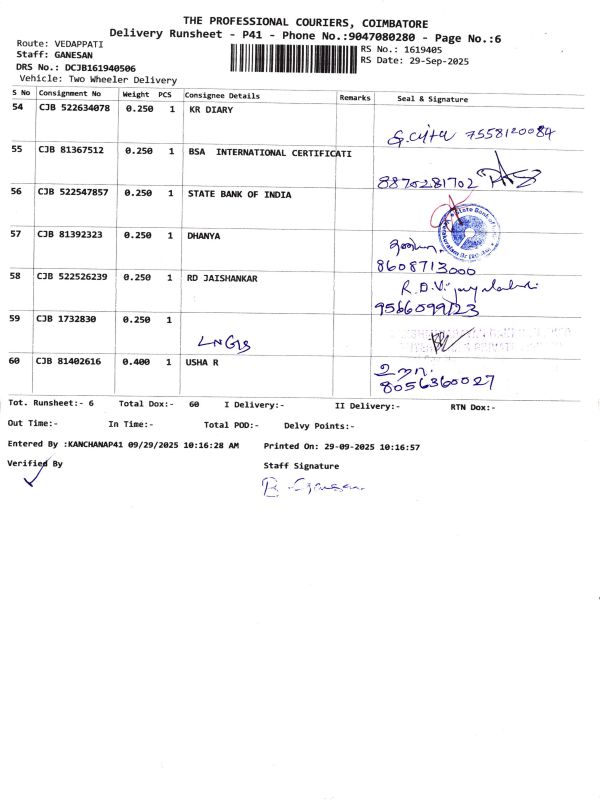 THE PROFESSIONAL COURIERS, COIMBATORE
Delivery Runsheet - P41 - Phone No.:9047080280 - Page No.:6
Route: VEDAPPATI
Staff: GANESAN
DRS No.: DCJB161940506
Vehicle: Two Wheeler Delivery
RS No.: 1619405
RS Date: 29-Sep-2025
S No Consignment No Weight PCS Consignee Details Remarks Seal & Signature
54 CJB 522634078 0.250 1 KR DIARY
7558120084
55 CJB 81367512 0.250 1 BSA INTERNATIONAL CERTIFICATI
8870281702
56 CJB 522547857 0.250 1 STATE BANK OF INDIA
State Bank of
57 CJB 81392323 0.250 1 DHANYA
8608713000
58 CJB 522526239 0.250 1 RD JAISHANKAR
R.D.
9566099123
59 CJB 1732830 0.250 1
60 CJB 81402616 0.400 1 USHA R
உஷா.
8056360027
Tot. Runsheet:- 6 Total Dox:- 60 I Delivery:- II Delivery:- RTN Dox:-
Out Time:- In Time:- Total POD:- Delvy Points:-
Entered By :KANCHANAP41 09/29/2025 10:16:28 AM Printed On: 29-09-2025 10:16:57
Verified By Staff Signature
R. Ganesan